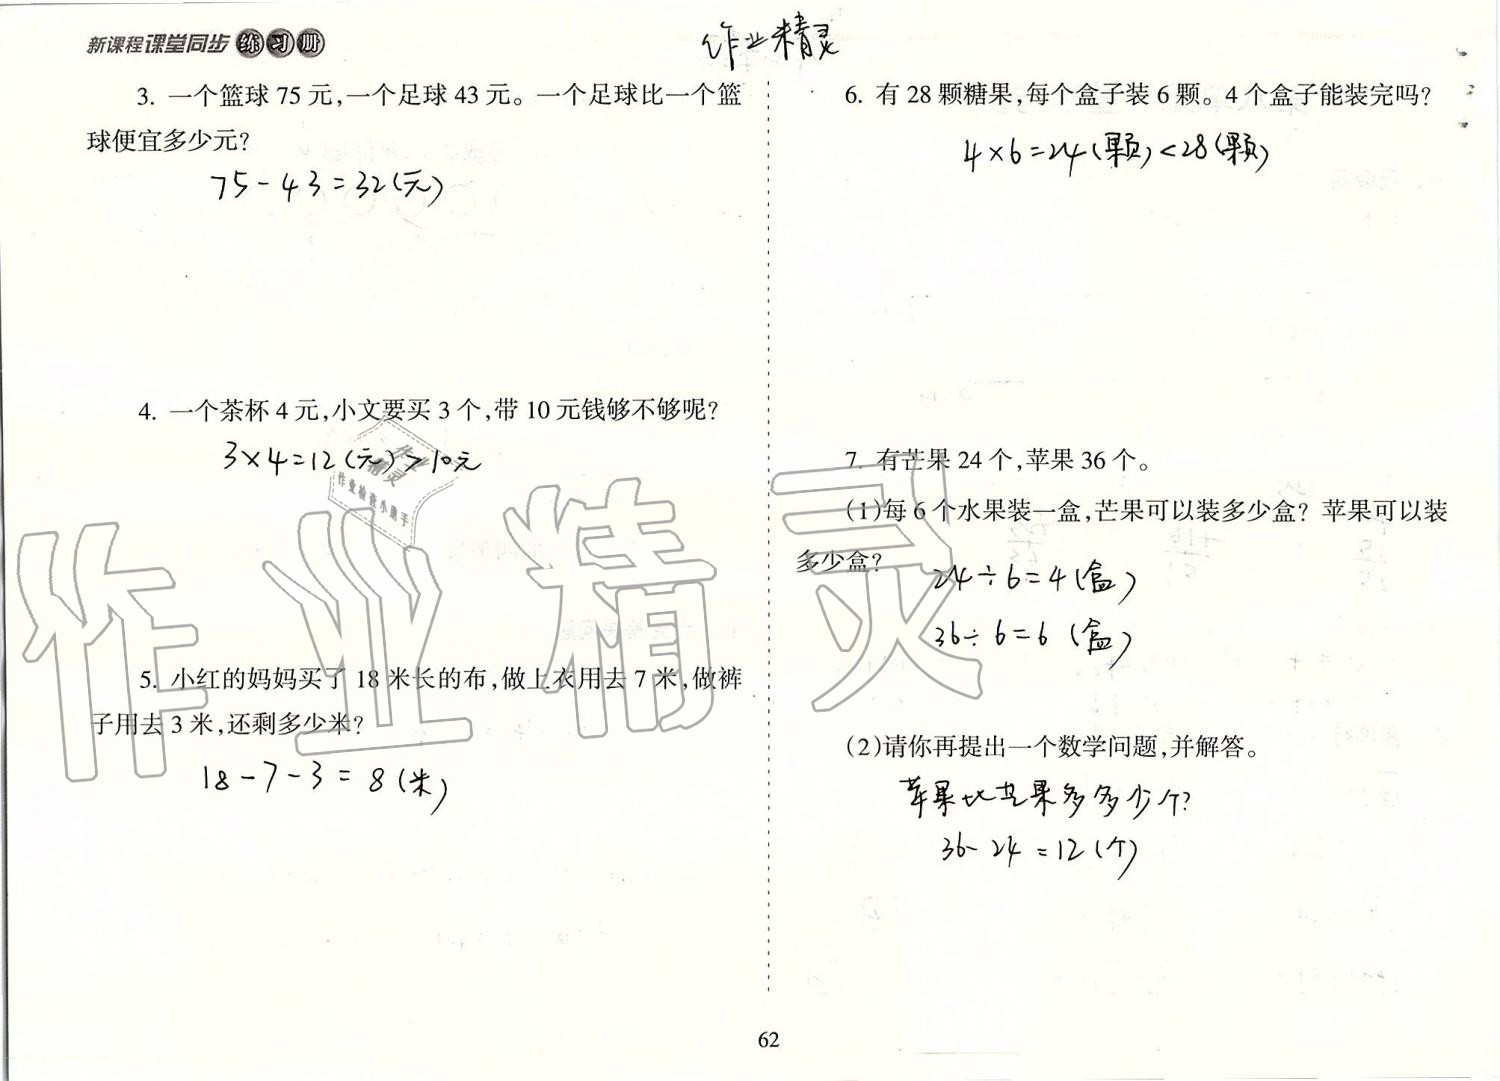 新课程课堂同步练习册
作业精灵
3. 一个篮球75元,一个足球43元。一个足球比一个篮
球便宜多少元?
75-43=32(元)
4. 一个茶杯4元,小文要买3个,带10元钱够不够呢?
3×4=12(元)>10元
5. 小红的妈妈买了18米长的布,做上衣用去7米,做裤
子用去3米,还剩多少米?
18-7-3=8(米)
6. 有28颗糖果,每个盒子装6颗。4个盒子能装完吗?
4×6=24(颗)<28(颗)
7. 有芒果24个,苹果36个。
(1)每6个水果装一盒,芒果可以装多少盒? 苹果可以装
多少盒?
24÷6=4(盒)
36÷6=6(盒)
(2)请你再提出一个数学问题,并解答。
苹果比芒果多多少个?
36-24=12(个)
作业精灵
作业
精灵
作业检查小助手
62